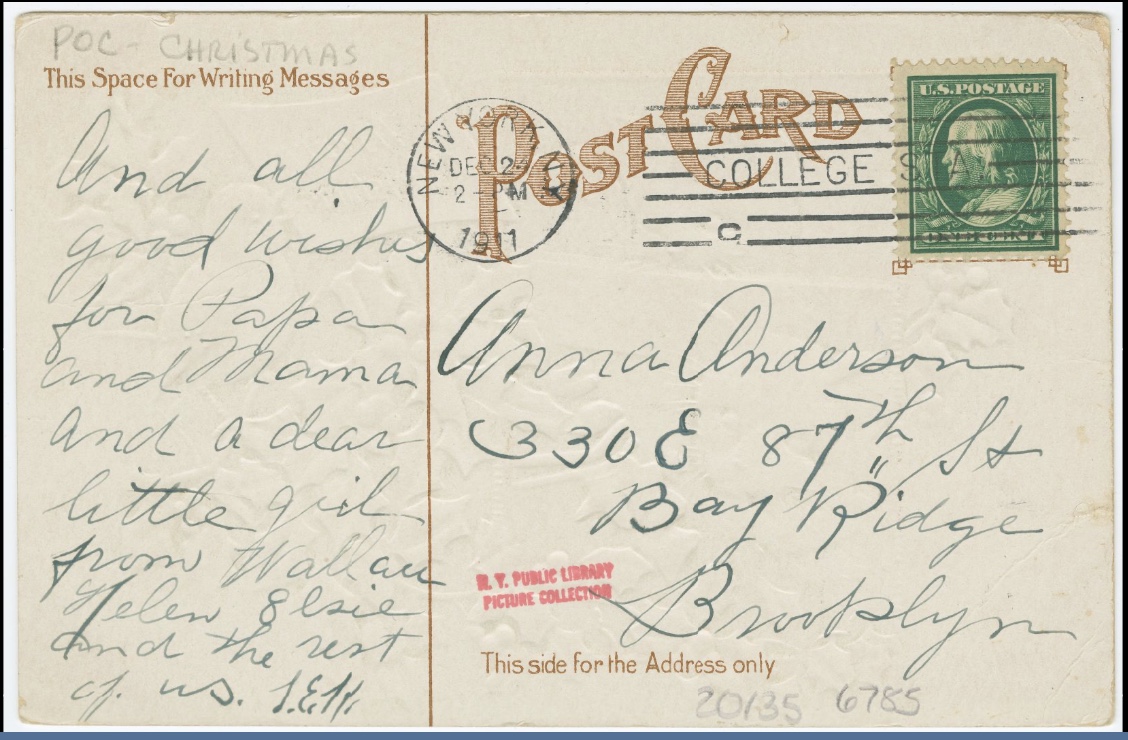 POC - CHRISTMAS
This Space For Writing Messages
And all
good wishes
for Papa
and Mama
and a dear
little girl
from Wallace
Helen Elsie
and the rest
of us.
POST CARD
NEW YORK
DEC 2
2 PM
1911
COLLEGE STA
C
U.S. POSTAGE
Anna Anderson
330 E 87th St
Bay Ridge
Brooklyn
N. Y. PUBLIC LIBRARY
PICTURE COLLECTION
This side for the Address only
20135 6785